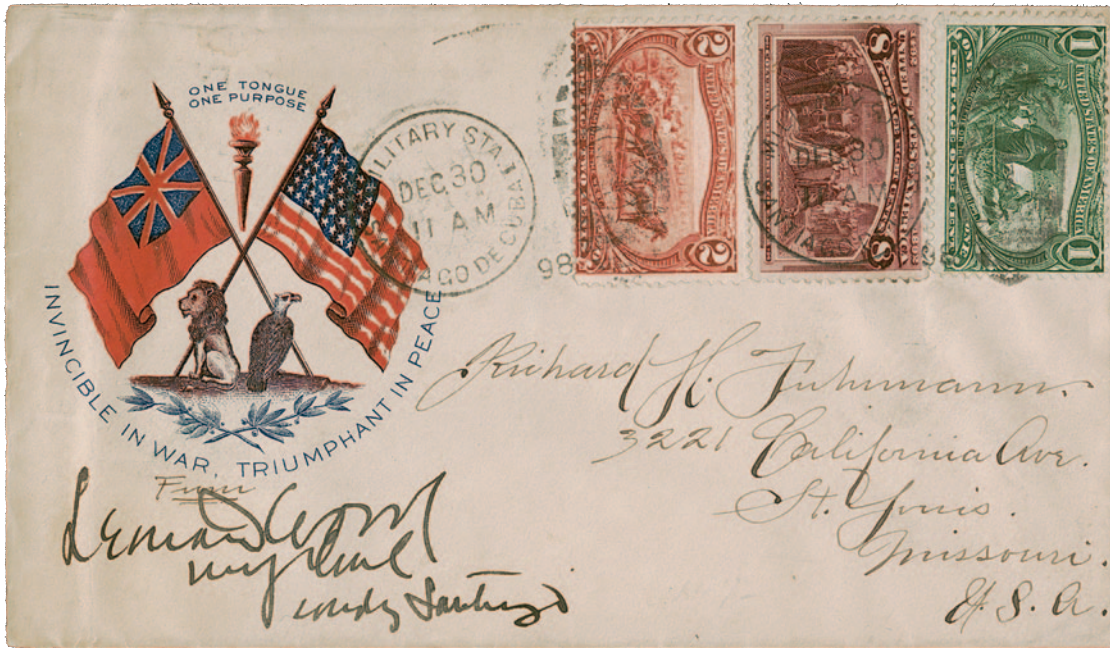 ONE TONGUE
ONE PURPOSE
INVINCIBLE IN WAR, TRIUMPHANT IN PEACE
MILITARY STA.
DEC 30
11 AM
SANTIAGO DE CUBA
98
2 UNITED STATES OF AMERICA 2
8 8
DEC 30
11 AM
1 UNITED STATES OF AMERICA 1
Richard H. Fuhrmann
3221 California Ave.
St. Louis.
Missouri.
U.S.A.
From
Leonard Wood
Maj Genl
Comdg Santiago